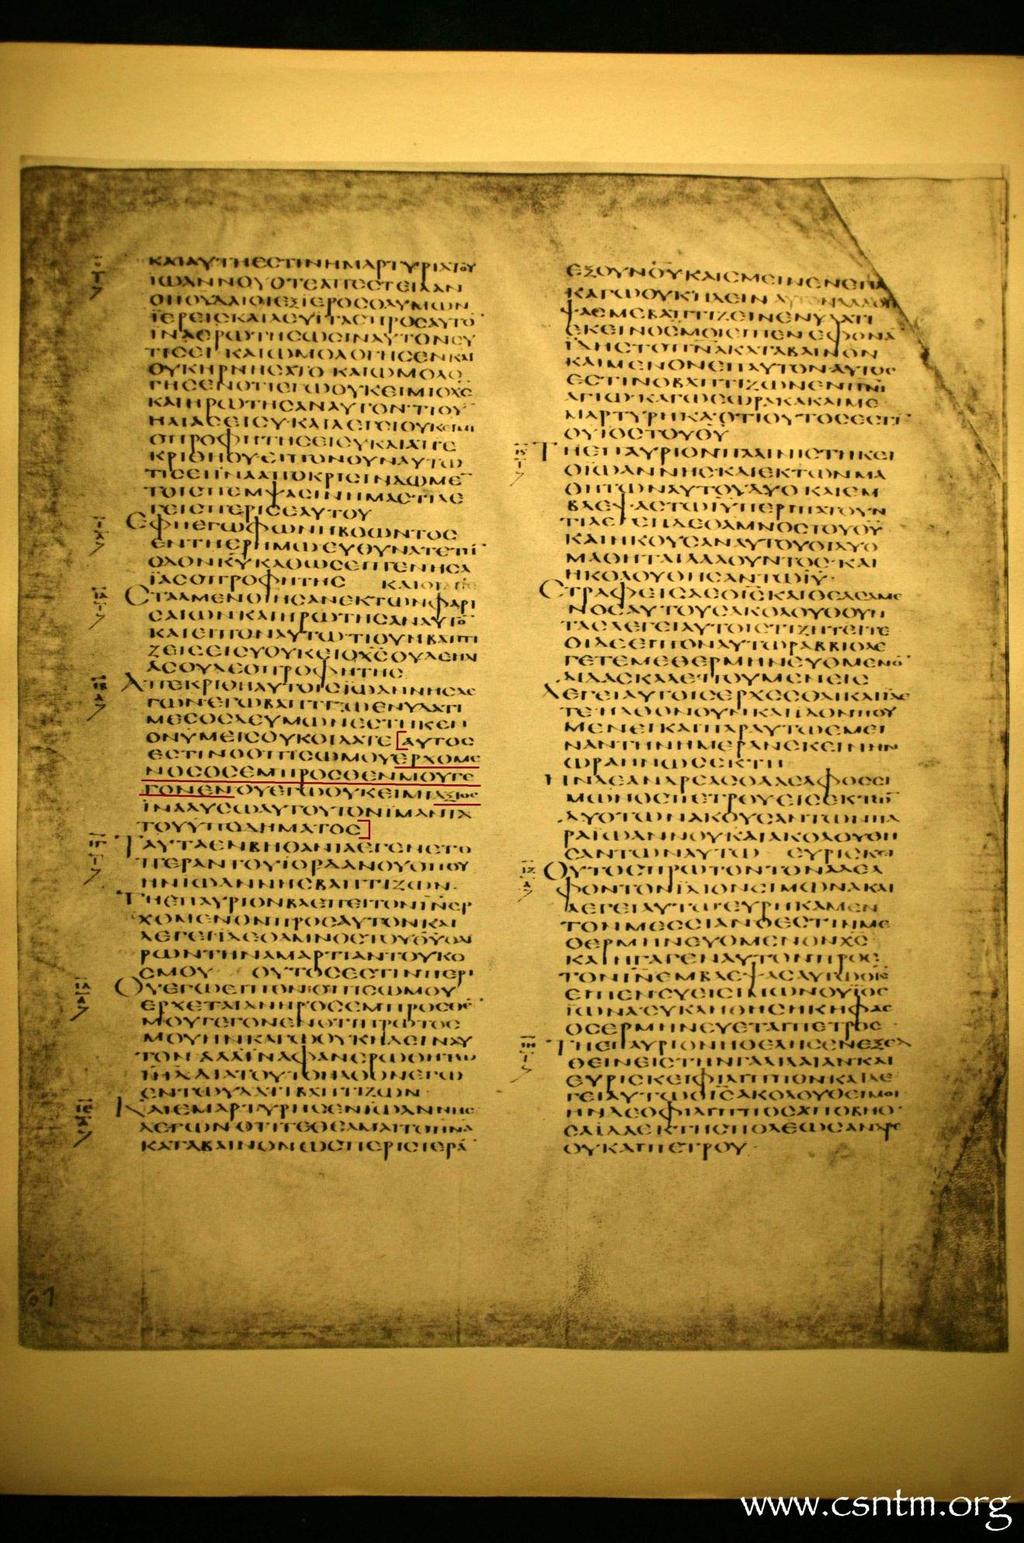 ΚΑΙΑΥΤΗΕΣΤΙΝΗΜΑΡΤΥΡΙΑΤΟΥ
ΙΩΑΝΝΟΥΟΤΕΑΠΕΣΤΕΙΛΑΝ
ΟΙΙΟΥΔΑΙΟΙΕΞΙΕΡΟΣΟΛΥΜΩΝ
ΙΕΡΕΙΣΚΑΙΛΕΥΙΤΑΣΠΡΟΣΑΥΤΟ
ΙΝΑΕΡΩΤΗΣΩΣΙΝΑΥΤΟΝΣΥ
ΤΙΣΕΙ ΚΑΙΩΜΟΛΟΓΗΣΕΝΚΑΙ
ΟΥΚΗΡΝΗΣΑΤΟ ΚΑΙΩΜΟΛΟ
ΓΗΣΕΝΟΤΙΕΓΩΟΥΚΕΙΜΙΟΧΣ
ΚΑΙΗΡΩΤΗΣΑΝΑΥΤΟΝΤΙΟΥ
ΗΛΙΑΣΕΙΣΥΚΑΙΛΕΓΕΙΟΥΚΕΙΜΙ
ΟΠΡΟΦΗΤΗΣΕΙΣΥΚΑΙΑΠΕ
ΚΡΙΘΗΟΥΕΙΠΟΝΟΥΝΑΥΤΩ
ΤΙΣΕΙΙΝΑΑΠΟΚΡΙΣΙΝΔΩΜΕ
ΤΟΙΣΠΕΜΨΑΣΙΝΗΜΑΣΤΙΛΕ
ΓΕΙΣΠΕΡΙΣΕΑΥΤΟΥ
ΕΦΗΕΓΩΦΩΝΗΒΟΩΝΤΟΣ
ΕΝΤΗΕΡΗΜΩΕΥΘΥΝΑΤΕΤΗ
ΟΔΟΝΚΥΚΑΘΩΣΕΙΠΕΝΗΣΑ
ΙΑΣΟΠΡΟΦΗΤΗΣ ΚΑΙΟΙ
ΕΣΤΑΛΜΕΝΟΙΗΣΑΝΕΚΤΩΝΦΑΡΙ
ΣΑΙΩΝΚΑΙΗΡΩΤΗΣΑΝΑΥΤΟ
ΚΑΙΕΙΠΟΝΑΥΤΩΤΙΟΥΝΒΑΠΤΙ
ΖΕΙΣΕΙΣΥΟΥΚΕΙΟΧΣΟΥΔΕΗΛΙ
ΑΣΟΥΔΕΟΠΡΟΦΗΤΗΣ
ΑΠΕΚΡΙΘΗΑΥΤΟΙΣΙΩΑΝΝΗΣΛΕ
ΓΩΝΕΓΩΒΑΠΤΙΖΩΕΝΥΔΑΤΙ
ΜΕΣΟΣΔΕΥΜΩΝΕΣΤΗΚΕΝ
ΟΝΥΜΕΙΣΟΥΚΟΙΔΑΤΕ[ΑΥΤΟΣ
ΕΣΤΙΝΟΟΠΙΣΩΜΟΥΕΡΧΟΜΕ
ΝΟΣΟΣΕΜΠΡΟΣΘΕΝΜΟΥΓΕ
ΓΟΝΕΝΟΥΕΓΩΟΥΚΕΙΜΙΑΞΙΟΣ
ΙΝΑΛΥΣΩΑΥΤΟΥΤΟΝΙΜΑΝΤΑ
ΤΟΥΥΠΟΔΗΜΑΤΟΣ]
ΤΑΥΤΑΕΝΒΗΘΑΝΙΑΕΓΕΝΕΤΟ
ΠΕΡΑΝΤΟΥΙΟΡΔΑΝΟΥΟΠΟΥ
ΗΝΙΩΑΝΝΗΣΒΑΠΤΙΖΩΝ
ΤΗΕΠΑΥΡΙΟΝΒΛΕΠΕΙΤΟΝΙΝΕΡ
ΧΟΜΕΝΟΝΠΡΟΣΑΥΤΟΝΚΑΙ
ΛΕΓΕΙΙΔΕΟΑΜΝΟΣΤΟΥΘΥΟΑΙ
ΡΩΝΤΗΝΑΜΑΡΤΙΑΝΤΟΥΚΟ
ΣΜΟΥ ΟΥΤΟΣΕΣΤΙΝΠΕΡΙ
ΟΥΕΓΩΕΙΠΟΝΟΠΙΣΩΜΟΥ
ΕΡΧΕΤΑΙΑΝΗΡΟΣΕΜΠΡΟΣΘΕ
ΜΟΥΓΕΓΟΝΕΝΟΤΙΠΡΩΤΟΣ
ΜΟΥΗΝΚΑΓΩΟΥΚΗΔΕΙΝΑΥ
ΤΟΝ ΑΛΛΙΝΑΦΑΝΕΡΩΘΗΤΩ
ΙΗΛΔΙΑΤΟΥΤΟΗΛΘΟΝΕΓΩ
ΕΝΤΩΥΔΑΤΙΒΑΠΤΙΖΩΝ
ΚΑΙΕΜΑΡΤΥΡΗΣΕΝΙΩΑΝΝΗΣ
ΛΕΓΩΝΟΤΙΤΕΘΕΑΜΑΙΤΟΠΝΑ
ΚΑΤΑΒΑΙΝΟΝΩΣΠΕΡΙΣΤΕΡΑ
ΕΞΟΥΝΟΥΚΑΙΕΜΕΙΝΕΝΕΠΑ
ΚΑΓΩΟΥΚΗΔΕΙΝ
ΨΑΣΜΕΒΑΠΤΙΖΕΙΝΕΝΥΔΑΤΙ
ΕΚΕΙΝΟΣΜΟΙΕΙΠΕΝΕΦΟΝΑ
ΙΔΗΣΤΟΠΝΑΚΑΤΑΒΑΙΝΟΝ
ΚΑΙΜΕΝΟΝΕΠΑΥΤΟΝΑΥΤΟΣ
ΕΣΤΙΝΟΒΑΠΤΙΖΩΝΕΝΠΝΙ
ΑΓΙΩΚΑΓΩΕΩΡΑΚΑΚΑΙΜΕ
ΜΑΡΤΥΡΗΚΑΟΤΙΟΥΤΟΣΕΣΤΙ
ΟΥΙΟΣΤΟΥΘΥ
ΤΗΕΠΑΥΡΙΟΝΠΑΛΙΝΙΣΤΗΚΕΙ
ΟΙΩΑΝΝΗΣΚΑΙΕΚΤΩΝΜΑ
ΘΗΤΩΝΑΥΤΟΥΔΥΟΚΑΙΕΜ
ΒΛΕΨΑΣΤΩΙΥΠΕΡΙΠΑΤΟΥΝ
ΤΙΛΕΓΕΙΙΔΕΟΑΜΝΟΣΤΟΥΘΥ
ΚΑΙΗΚΟΥΣΑΝΑΥΤΟΥΟΙΔΥΟ
ΜΑΘΗΤΑΙΛΑΛΟΥΝΤΟΣ·ΚΑΙ
ΗΚΟΛΟΥΘΗΣΑΝΤΩΙΥ·
ΣΤΡΑΦΕΙΣΔΕΟΙΣΚΑΙΘΕΑΣΑΜΕ
ΝΟΣΑΥΤΟΥΣΑΚΟΛΟΥΘΟΥΝ
ΤΑΣΛΕΓΕΙΑΥΤΟΙΣΤΙΖΗΤΕΙΤΕ
ΟΙΔΕΕΙΠΟΝΑΥΤΩΡΑΒΒΙΟΛΕ
ΓΕΤΕΜΕΘΕΡΜΗΝΕΥΟΜΕΝΟ
ΔΙΔΑΣΚΑΛΕΠΟΥΜΕΝΕΙΣ
ΛΕΓΕΙΑΥΤΟΙΣΕΡΧΕΣΘΕΚΑΙΙΔΕ
ΤΕΗΛΘΟΝΟΥΝΚΑΙΙΔΟΝΠΟΥ
ΜΕΝΕΙΚΑΙΠΑΡΑΥΤΩΕΜΕΙ
ΝΑΝΤΗΝΗΜΕΡΑΝΕΚΕΙΝΗΝ
ΩΡΑΗΝΩΣΕΚΤΗ
ΗΝΔΕΑΝΔΡΕΑΣΟΑΔΕΛΦΟΣΣΙ
ΜΩΝΟΣΠΕΤΡΟΥΕΙΣΕΚΤΩ
ΔΥΟΤΩΝΑΚΟΥΣΑΝΤΩΝΠΑ
ΡΑΙΩΑΝΝΟΥΚΑΙΑΚΟΛΟΥΘΗ
ΣΑΝΤΩΝΑΥΤΩ ΕΥΡΙΣΚΕΙ
ΟΥΤΟΣΠΡΩΤΟΝΤΟΝΑΔΕΛ
ΦΟΝΤΟΝΙΔΙΟΝΣΙΜΩΝΑΚΑΙ
ΛΕΓΕΙΑΥΤΩΕΥΡΗΚΑΜΕΝ
ΤΟΝΜΕΣΣΙΑΝΟΕΣΤΙΝΜΕ
ΘΕΡΜΗΝΕΥΟΜΕΝΟΝΧΣ
ΚΑΙΗΓΑΓΕΝΑΥΤΟΝΠΡΟΣ
ΤΟΝΙΝΕΜΒΛΕΨΑΣΑΥΤΩΟΙΣ
ΕΙΠΕΝΣΥΕΙΣΙΜΩΝΟΥΙΟΣ
ΙΩΝΑΣΥΚΛΗΘΗΣΗΚΗΦΑΣ
ΟΣΕΡΜΗΝΕΥΕΤΑΙΠΕΤΡΟΣ
ΤΗΕΠΑΥΡΙΟΝΗΘΕΛΗΣΕΝΕΞΕΛ
ΘΕΙΝΕΙΣΤΗΝΓΑΛΙΛΑΙΑΝΚΑΙ
ΕΥΡΙΣΚΕΙΦΙΛΙΠΠΟΝΚΑΙΛΕ
ΓΕΙΑΥΤΩΟΙΣΑΚΟΛΟΥΘΕΙΜΟΙ
ΗΝΔΕΟΦΙΛΙΠΠΟΣΑΠΟΒΗΘ
ΣΑΙΔΑΕΚΤΗΣΠΟΛΕΩΣΑΝΔΡΕ
ΟΥΚΑΙΠΕΤΡΟΥ
www.csntm.org